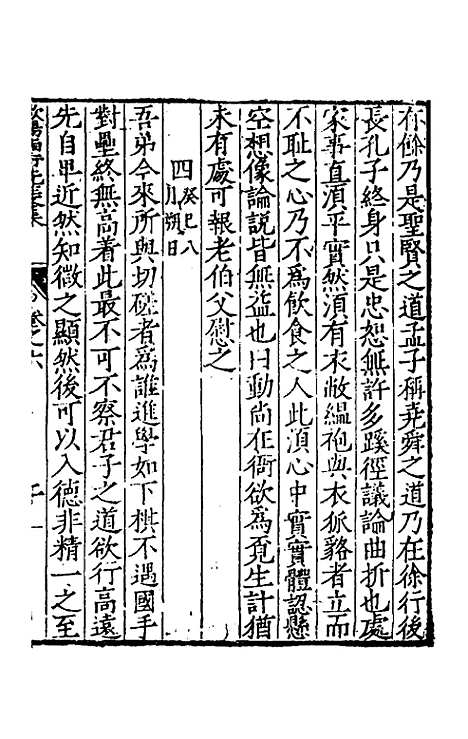 有餘乃是聖賢之道孟子稱堯舜之道乃在徐行後
長孔子終身只是忠恕無許多蹊徑議論曲折也處
家事直須平實然須有衣敝縕袍與衣狐貉者立而
不恥之心乃不為飲食之人此須心中實實體認懸
空想像論說皆無益也日動尚在衙欲為覓生計猶
未有處可報老伯父慰之
四 癸巳八月朔日
吾弟今來所與切磋者為誰進學如下棋不遇國手
對壘終無高着此最不可不察君子之道欲行高遠
先自卑近然知微之顯然後可以入德非精一之至
卷之六